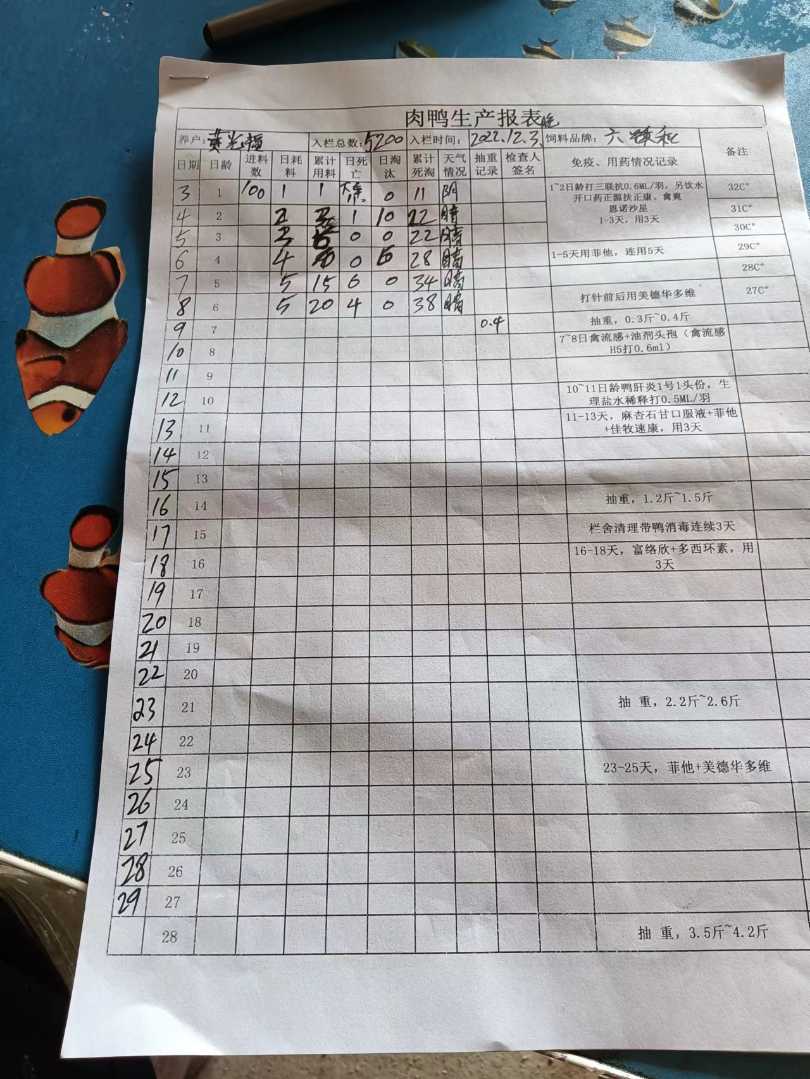 肉鸭生产报表
养户: 黄光福 入栏总数: 5200 入栏时间: 2022.12.3 饲料品牌: 六 和
日期 日龄 进料数 日耗料 累计用料 日死亡 日淘汰 累计死淘 天气情况 抽重记录 检查人签名 免疫、用药情况记录 备注
3 1 100 1 1 0 11 阴 1~2日龄打三联抗0.6ML/羽,另饮水开口药正源扶正康、禽爽恩诺沙星 1-3天,用3天 32C°
4 2 2 1 10 22 晴 31C°
5 3 3 6 0 0 22 晴 30C°
6 4 4 0 6 28 晴 1-5天用菲他,连用5天 29C°
7 5 5 15 6 0 34 晴 28C°
8 6 5 20 4 0 38 晴 打针前后用美德华多维 27C°
9 7 0.4 抽重,0.3斤~0.4斤
10 8 7~8日禽流感+油剂头孢(禽流感H5打0.6ml)
11 9
12 10 10~11日龄鸭肝炎1号1头份,生理盐水稀释打0.5ML/羽
13 11 11-13天,麻杏石甘口服液+菲他+佳牧速康,用3天
14 12
15 13
16 14 抽重,1.2斤~1.5斤
17 15 栏舍清理带鸭消毒连续3天
18 16 16-18天,富络欣+多西环素,用3天
19 17
20 18
21 19
22 20
23 21 抽 重,2.2斤~2.6斤
24 22
25 23 23-25天,菲他+美德华多维
26 24
27 25
28 26
29 27
28 抽 重,3.5斤~4.2斤